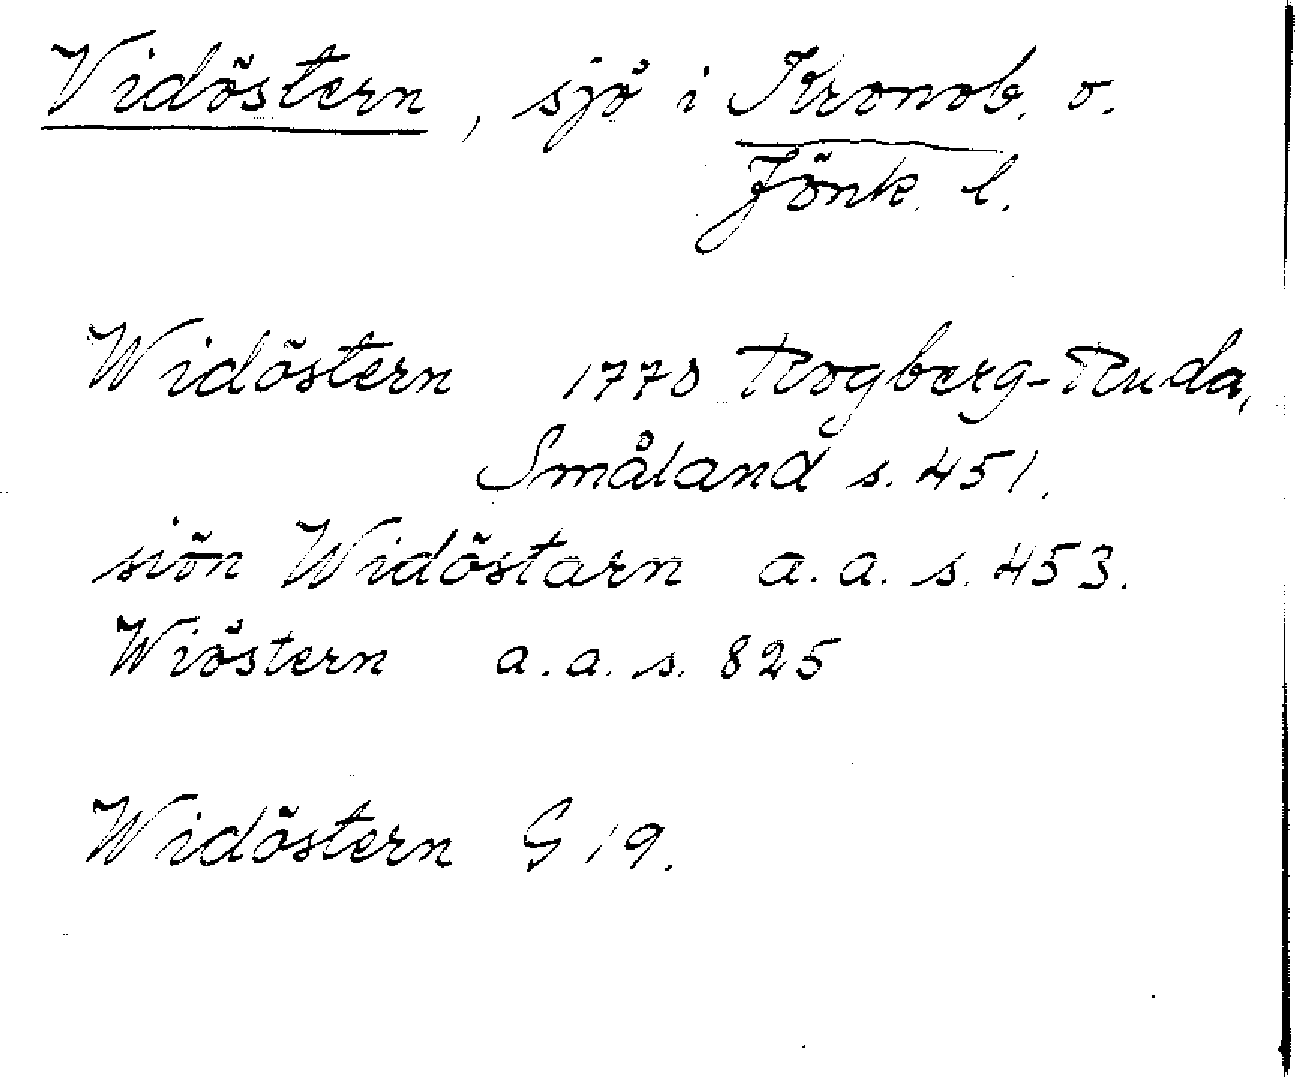 Vidöstern, sjö i Kronob. o.
Jönk. l.
Widöstern 1770 Rogberg-Ruda,
Småland s. 451.
siön Widöstarn a.a. s. 453.
Wiöstern a.a. s. 825
Widöstern G 19.